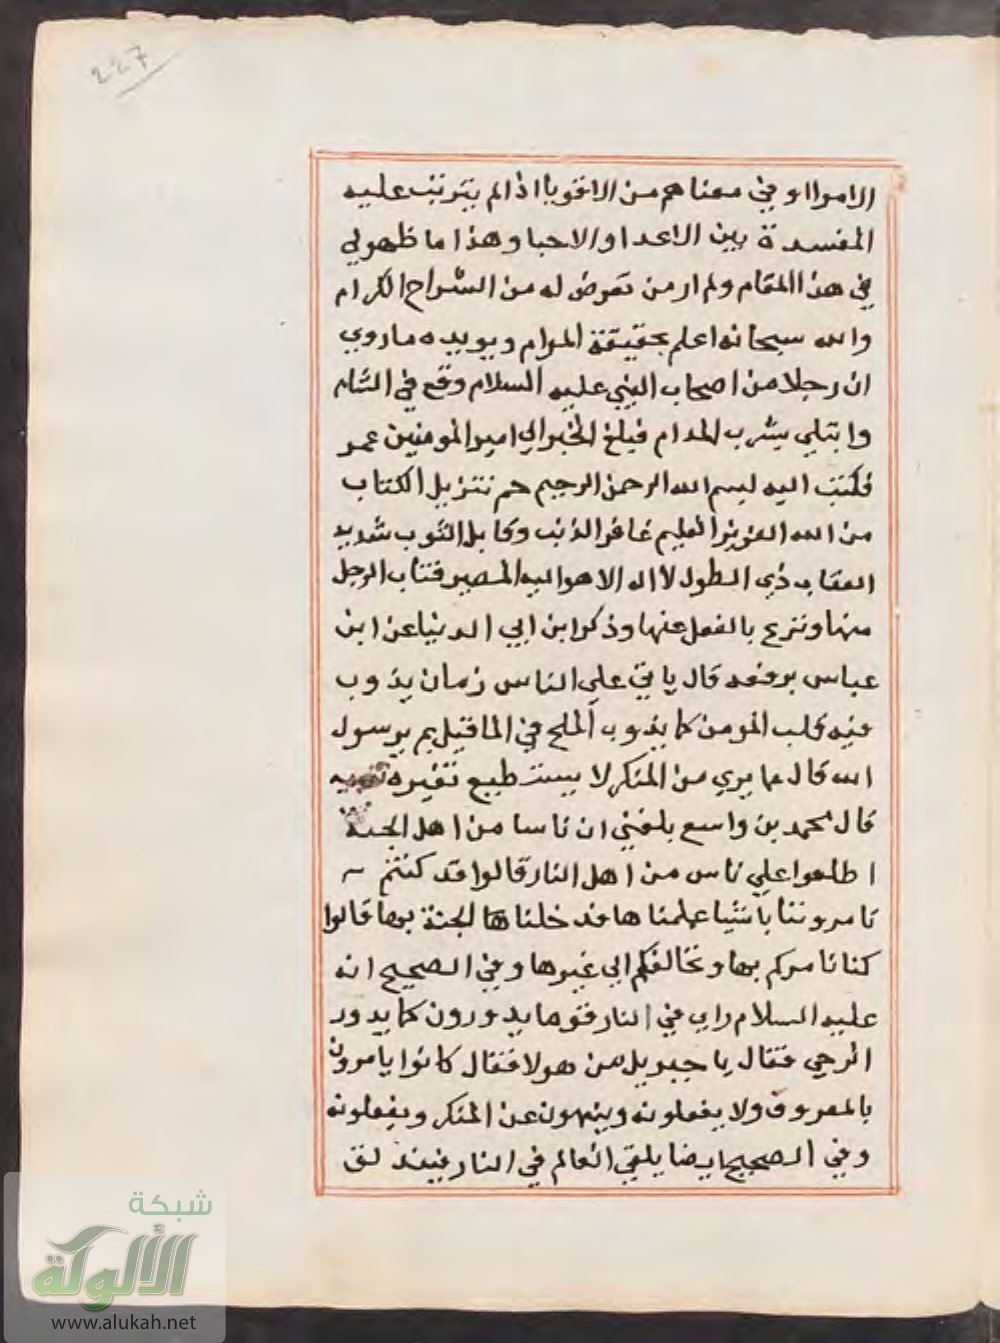 227
الامرا او في معناهم من الاقويا اذا لم يترتب عليه
المفسدة بين الاعدا والاحبا وهذا ما ظهر لي
في هذا المقام ولم ار من تعرض له من الشراح الكرام
والله سبحانه اعلم بحقيقة المرام ويويده ما روي
ان رجلا من اصحاب النبي عليه السلام وقع في الشام
وابتلي بشرب المدام فبلغ الخبر الي امير المومنين عمر
فكتب اليه بسم الله الرحمن الرحيم حم تنزيل الكتاب
من الله العزيز العليم غافر الذنب وقابل التوب شديد
العقاب ذي الطول لا اله الا هو اليه المصير فتاب الرجل
منها ونزع بالفعل عنها وذكر ابن ابي الدنيا عن ابن
عباس يرفعه قال ياتي علي الناس زمان يذوب
فيه قلب المومن كما يذوب الملح في الما قيل بم يرسول
الله قال مما يري من المنكر لا يستطيع تغيره
قال محمد بن واسع بلغني ان ناسا من اهل الجنة
اطلعوا علي ناس من اهل النار قالوا قد كنتم
تامروننا باشيا عملناها فدخلنا الجنة بها قالوا
كنا نامركم بها ونخالفكم الي غيرها وفي الصحيح انه
عليه السلام راي في النار قوما يدورون كما يدور
الرحي فقال يا جبريل من هولا فقال كانوا يامرون
بالمعروف ولا يفعلونه وينهون عن المنكر ويفعلونه
وفي الصحيح ايضا يلقي العالم في النار فيندلق
شبكة
الألوكة
www.alukah.net